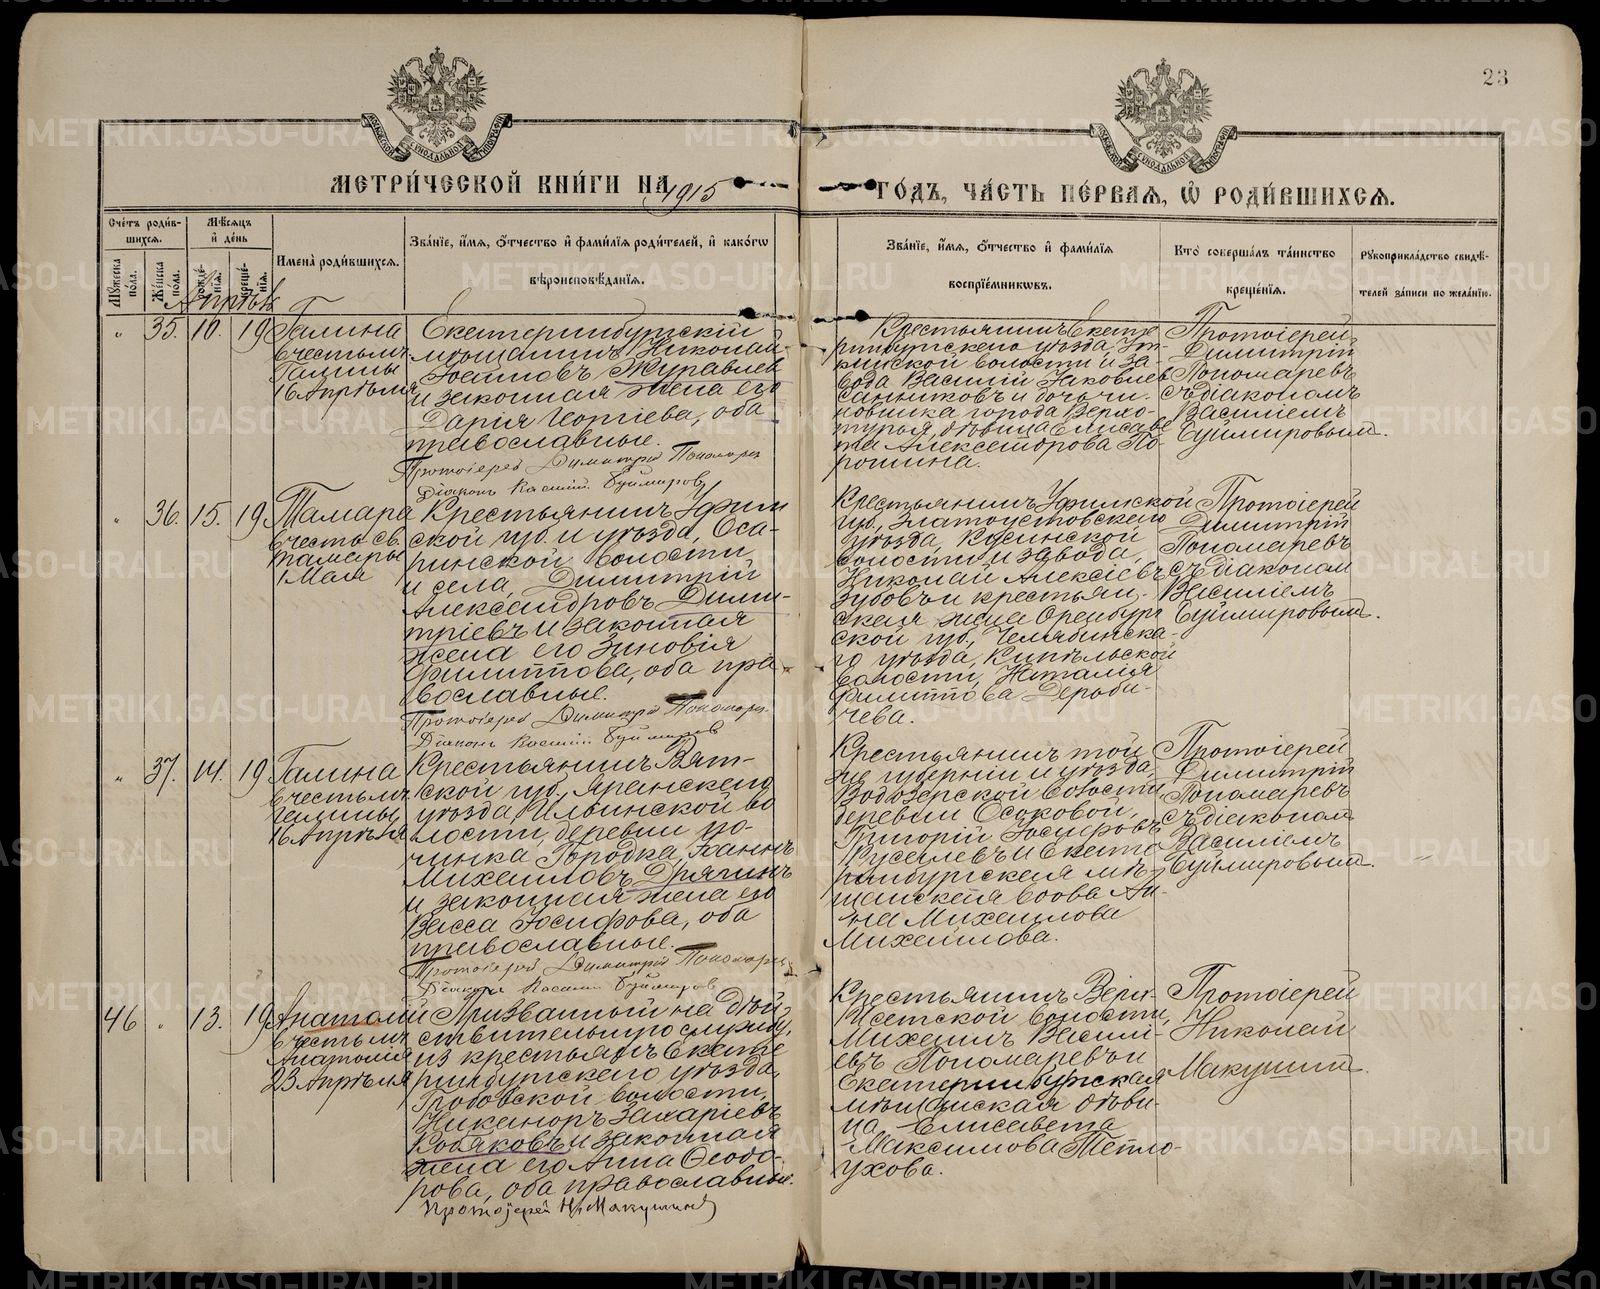 23
МЕТРИ́ЧЕСКОЙ КНИ́ГИ НА 1915
ГО́ДЪ, ЧА́СТЬ ПЕ́РВАѦ, Ѡ҆ РОДИ́ВШИХСѦ.
Сче́тъ роди́в-
шихсѧ.
Мѣ́сѧцъ
и҆ де́нь
Мꙋ́жеска
по́ла.
Же́нска
по́ла.
рожде́-
нїѧ.
креще́-
нїѧ.
Имена̀ роди́вшихсѧ.
Зва́нїе, и҆́мѧ, ѻ҆́тчество и҆ фами́лїѧ роди́телей, и҆ како́гѡ
вѣроисповѣ́данїѧ.
Зва́нїе, и҆́мѧ, ѻ҆́тчество и҆ фами́лїѧ
воспрїе́мникѡвъ.
Кто̀ соверша́лъ та́инство
креще́нїѧ.
Рꙋкоприкла́дство свидѣ́-
телей за́писи по жела́нїю.
Апрѣль
" 35. 10. 19
Галина
въ честь мч.
Галины
16 Апрѣля
Екатеринбургскій
мѣщанинъ Николай
Журавлев
и законная жена его
Дарія Георгіева, оба
православные.
Протоіерей Димитрій Пономарев
Діаконъ Василій Буймировъ
Крестьянинъ Екате
ринбургскаго уѣзда, Ут-
кинской волости и за-
вода Василій Яковлев
Санниковъ и дочь чи-
новника города Верхо-
турья, дѣвица Елисаве
та Александрова По-
рошина.
Протоіерей
Димитрій
Пономаревъ
съ діакономъ
Василіемъ
Буймировымъ.
" 36. 15. 19
Тамара
въ честь св.
Тамары
1 Мая
Крестьянинъ Уфим
ской губ. и уѣзда, Оса-
ринской волости
и села, Димитрій
Александровъ Дими-
тріевъ и законная
жена его Зиновія
Филиппова, оба пра-
вославные.
Протоіерей Димитрій Пономарев
Діаконъ Василій Буймировъ
Крестьянинъ Уфимской
губ., Златоустовскаго
уѣзда, Кусинской
волости и завода,
Николай Алексіевъ
Зубовъ и крестьян-
ская жена Оренбург
ской губ., Челябинска-
го уѣзда, Кипельской
волости, Наталия
Филиппова Дероби-
чева.
Протоіерей
Димитрій
Пономаревъ
съ діакономъ
Василіемъ
Буймировымъ.
" 37. 14. 19
Галина
въ честь мч.
Галины
16 Апрѣля
Крестьянинъ Вят-
ской губ., Яранскаго
уѣзда, Ильинской во
лости, деревни по-
чинка Городка, Іаннъ
Михаиловъ Дрягинъ
и законная жена его
Васса Іосифова, оба
православные.
Протоіерей Димитрій Пономарев
Діаконъ Василій Буймировъ
Крестьянинъ той
же губерніи и уѣзда,
Водозерской волости,
деревни Осоковой,
Григорій Іосифовъ
Русалевъ и Екате
ринбургская мѣ-
щанская вдова Ан-
на Михаилова
Михайлова.
Протоіерей
Димитрій
Пономаревъ
съ діакономъ
Василіемъ
Буймировымъ.
46 " 13. 19
Анатолій
въ честь мч.
Анатолія
23 Апрѣля
Призванный на дѣй-
ствительную службу,
из крестьянъ Екате
ринбургскаго уѣзда,
Гробовской волости,
Никаноръ Захаріевъ
Кобяковъ и законная
жена его Анна Ѳеодо-
рова, оба православные.
Протоіерей Н. Макушинъ
Крестьянинъ Верх-
Исетской волости,
Михаилъ Васили-
евъ Пономаревъ и
Екатеринбургская
мѣщанская дѣви-
ца Елисавета
Максимова Тепло-
ухова.
Протоіерей
Николай
Макушин.
METRIKI.GASO-URAL.RU